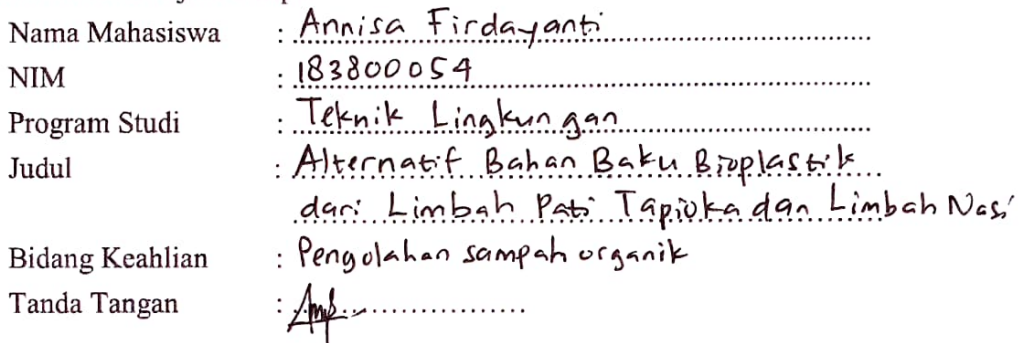 Nama Mahasiswa : Annisa Firdayanti
NIM : 183800054
Program Studi : Teknik Lingkungan
Judul : Alternatif Bahan Baku Bioplastik
dari Limbah Pati Tapioka dan Limbah Nasi
Bidang Keahlian : Pengolahan sampah organik
Tanda Tangan :